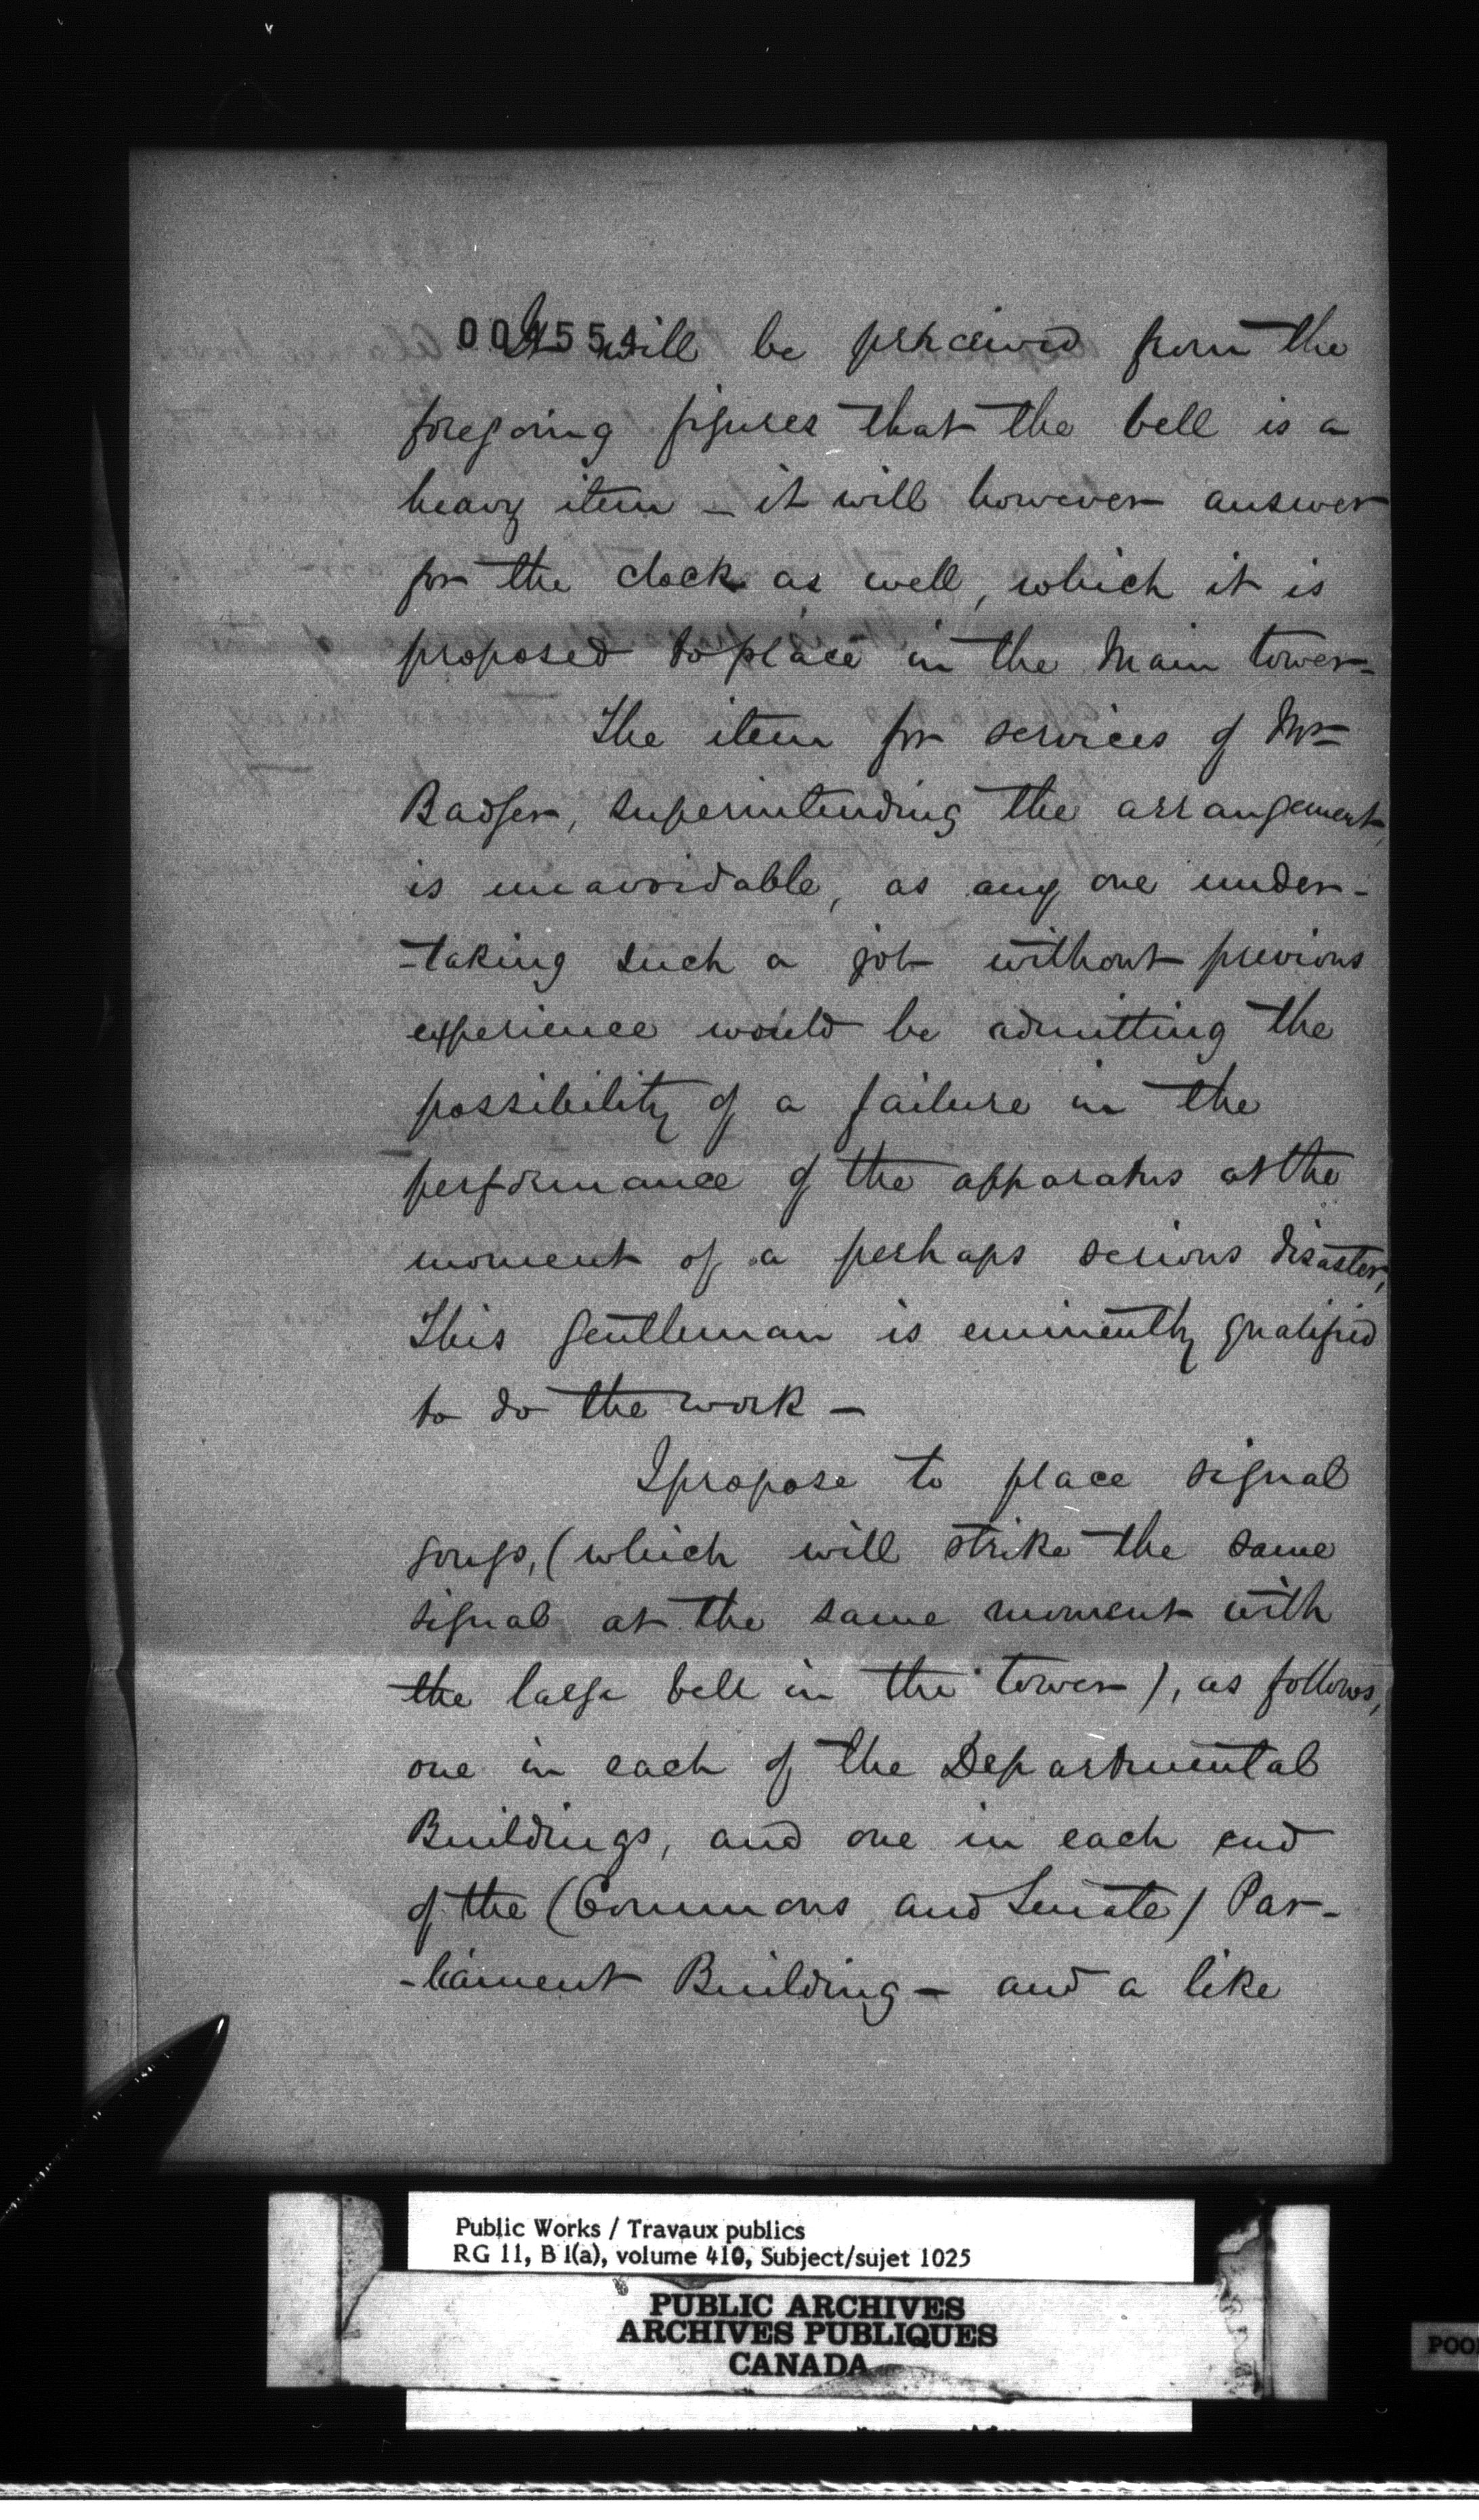 004554
It will be perceived from the
foregoing figures that the bell is a
heavy item – it will however answer
for the clock as well, which it is
proposed to place in the Main tower –
The item for services of Mr
Badger, superintending the arrangement,
is unavoidable, as any one under-
-taking such a job without previous
experience would be admitting the
possibility of a failure in the
performance of the apparatus at the
moment of a perhaps serious disaster,
This gentleman is eminently qualified
to do the work –
I propose to place signal
gongs, (which will strike the same
signal at the same moment with
the large bell in the tower), as follows,
one in each of the Departmental
Buildings, and one in each end
of the (Commons and Senate) Par-
-liament Building – and a like
Public Works / Travaux publics
RG 11, B 1(a), volume 410, Subject/sujet 1025
PUBLIC ARCHIVES
ARCHIVES PUBLIQUES
CANADA